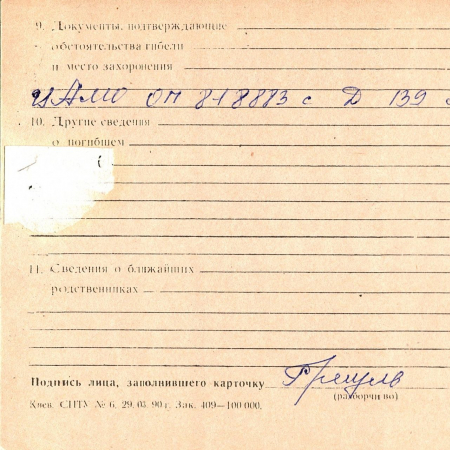 9. Документы, подтверждающие
обстоятельства гибели
и место захоронения
ЦАМО ОП 818883 с Д 139
10. Другие сведения
о погибшем
11. Сведения о ближайших
родственниках
Подпись лица, заполнившего карточку
(разборчиво)
Киев. СПТУ № 6. 29. 03. 90 г. Зак. 409—100 000.